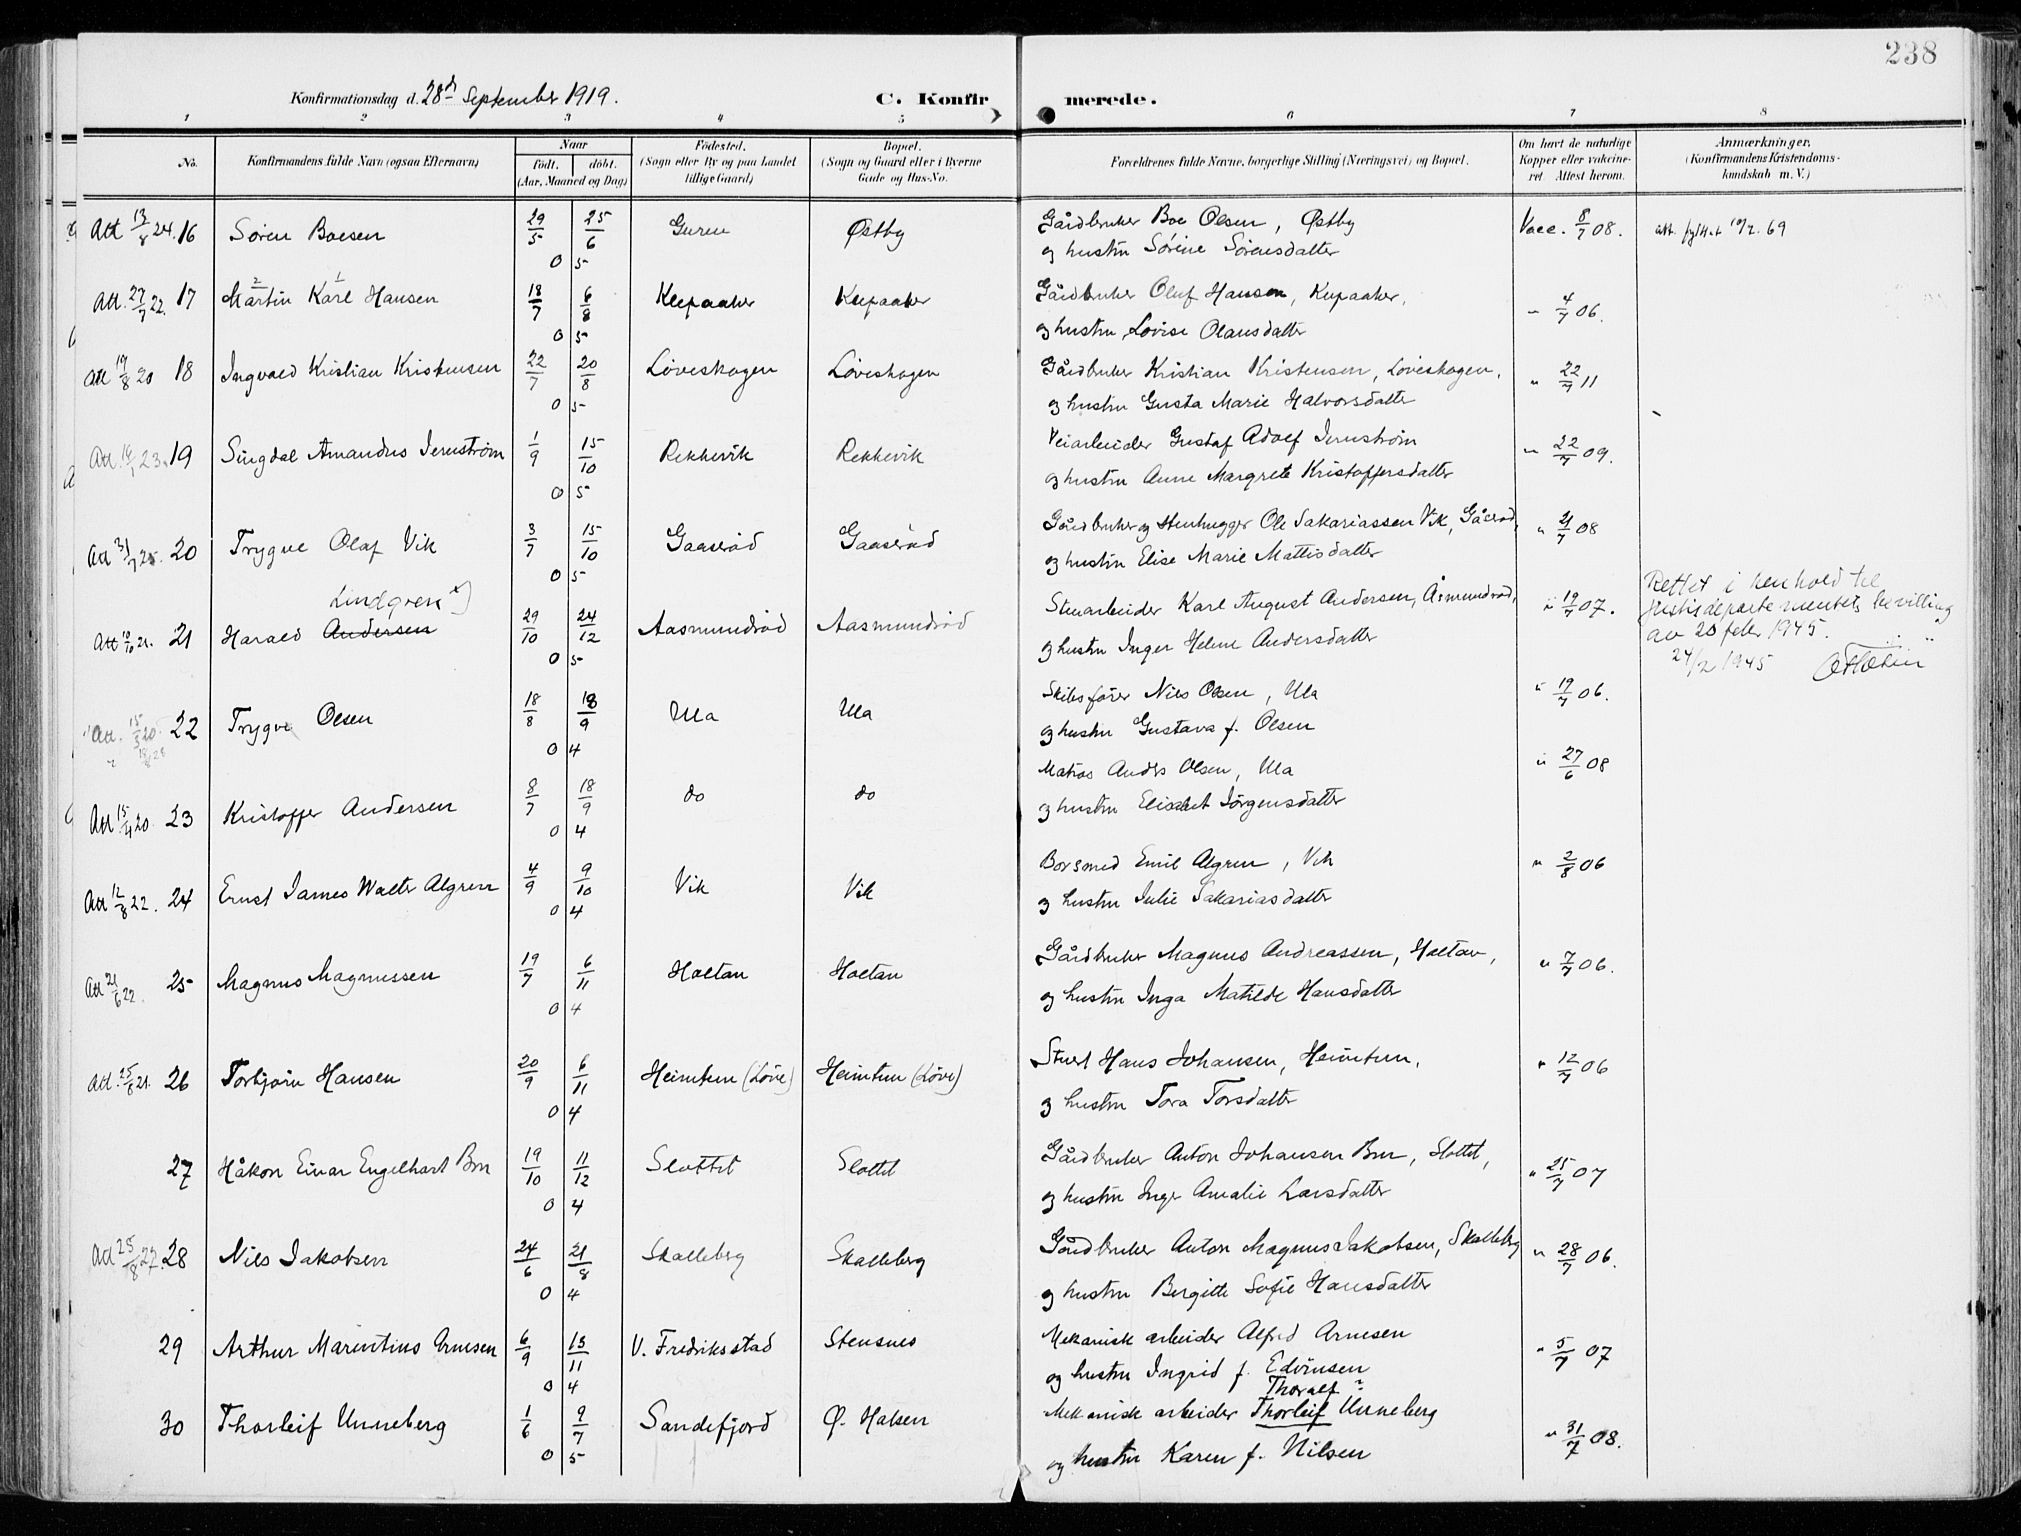 238
Konfirmationsdag d. 28d September 1919. C. Konfir merede.
1 2 3 4 5 6 7 8
No. Konfirmandens fulde Navn (ogsaa Efternavn) Naar født, døbt. (Aar, Maaned og Dag) Fødested. (Sogn eller By og paa Landet tillige Gaard) Bopæl. (Sogn og Gaard eller i Byerne Gade og Hus-No. Forældrenes fulde Navne, borgerlige Stilling (Næringsvei) og Bopæl. Om havt de naturlige Kopper eller vakcineret Attest herom. Anmærkninger, (Konfirmandens Kristendomskundskab m. V.)
Att 13/8 24. 16 Søren Boesen 29/5 25/6 Guren Østby Gårdbruker Boe Olsen, Østby Vacc. 8/7 08. att. 10/2. 69
0 5 og hustru Sørine Sørensdatter
Att. 27/7 22. 17 Martin 2 Karl 1 Hansen 18/7 6/8 Klepaaker Klepaaker Gårdbruker Oluf Hansen, Klepaaker, " 4/7 06.
0 5 og hustru Lovise Olausdatter
Att 19/8 20 18 Ingvald Kristian Kristensen 22/7 20/8 Løveskogen Løveskogen Gårdbruker Kristian Kristensen, Løveskogen, " 22/7 11
0 5 og hustru Gusta Marie Halvorsdatter
Att. 23. 19 Singdal Amandus Jernstrøm 1/9 15/10 Rekkevik Rekkevik Veiarbeider Gustaf Adolf Jernstrøm " 22/7 09.
0 5 og hustru Anne Margrete Kristoffersdatter
Att 31/7 25. 20 Trygve Olaf Vik 3/7 15/10 Gaaserød Gaaserød Gårdbruker og Stenhugger Ole Sakariassen Vik, Gåserød, " 21/7 08
0 5 og hustru Elise Marie Mattisdatter
Lindgren x)
Att 10/10 21. 21 Harald Andersen 29/10 24/12 Aasmundrød Aasmundrød Stenarbeider Karl August Andersen, Åsmundrød, " 19/7 07. Rettet i henhold til
0 5 og hustru Inger Helene Andersdatter Justisdepartementets bevilling
av 20 febr 1945.
24/2 1945
Att. 15/3 20. 22 Trygve Olsen 18/8 18/9 Ula Ula Skibsfører Nils Olsen, Ula " 19/7 06.
0 4 og hustru Gustava f. Olsen
Att 15/4 20. 23 Kristoffer Andersen 8/7 18/9 do do Matros Anders Olsen, Ula " 27/6 08
0 4 og hustru Elisabet Jørgensdatter
Att 12/8 22. 24 Ernst James Walter Algren 4/9 9/10 Vik Vik Borsmed Emil Algren, Vik " 2/8 06
0 4 og hustru Julie Sakariasdatter
Att 21/6 22. 25 Magnus Magnussen 19/7 6/11 Holtan Holtan Gårdbruker Magnus Andreassen, Holtan, " 7/7 06.
0 4 og hustru Inga Matilde Hansdatter
Att. 25/8 21. 26 Torbjørn Hansen 20/9 6/11 Heimtun (Løve) Heimtun (Løve) Stuert Hans Johansen, Heimtun, " 12/7 06
0 4 og hustru Tora Torsdatter
27 Håkon Einar Engelhart Bru 19/10 11/12 Slottet Slottet Gårdbruker Anton Johansen Bru, Slottet, " 25/7 07
0 4 og hustru Inger Amalie Larsdatter
Att 25/8 27. 28 Nils Jakobsen 24/6 21/8 Skalleberg Skalleberg Gårdbruker Anton Magnus Jakobsen, Skalleberg " 28/7 06.
0 4 og hustru Bergitte Sofie Hansdatter
29 Arthur Marentius Arnesen 6/9 13/11 V. Fredriksstad Stensnes Mekanisk arbeider Alfred Arnesen " 5/7 07
0 4 og hustru Ingrid f. Edvinsen
Thoralf ?
30 Thorleif Unneberg 1/6 9/7 Sandefjord Ø. Halsen Mekanisk arbeider Thorleif Unneberg " 31/7 08.
0 5 og hustru Karen f. Nilsen